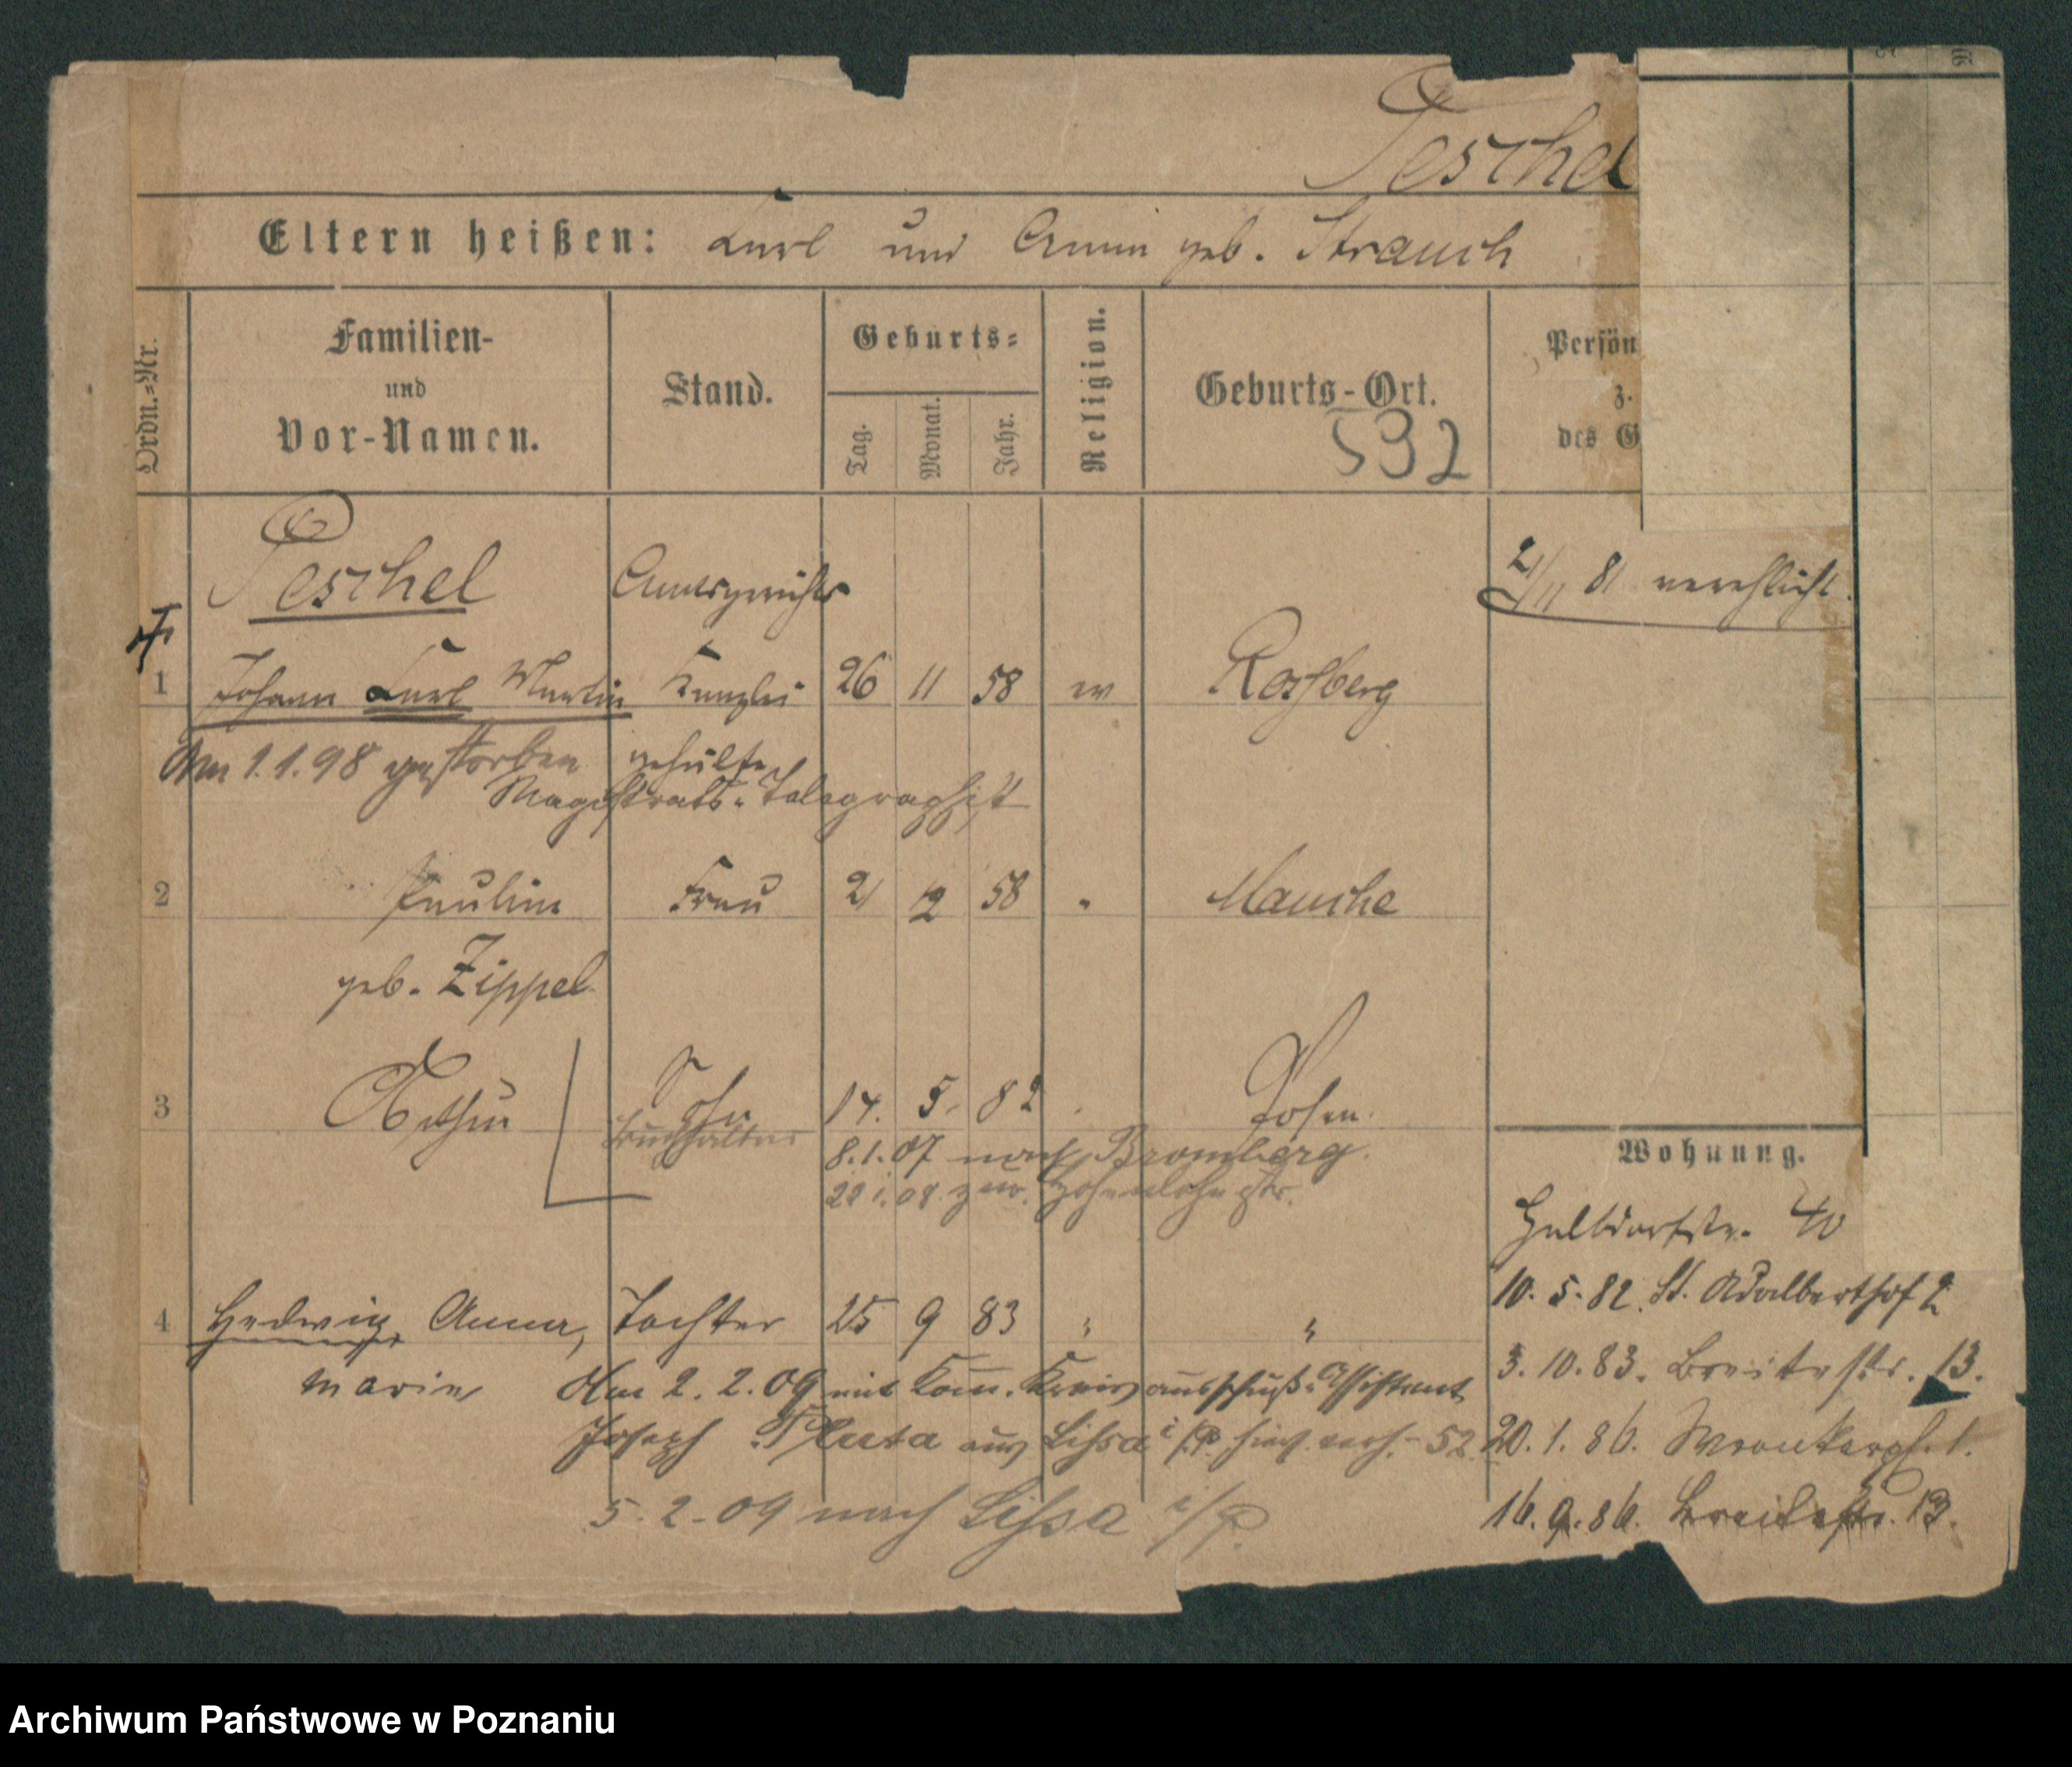 Teschel
Eltern heißen: Carl und Anna geb. Strauch
Ordn.=Nr.
Familien-
und
Vor-Namen.
Stand.
Geburts=
Tag.
Monat.
Jahr.
Religion.
Geburts-Ort.
532
Persön
z.
des G
Teschel Amtsgerichts
2/11 81 verehlicht.
1 Johann Carl Martin Kanzlei 26 11 58 ev Rossberg
Am 1.1.98 gestorben gehülfe
Magistrats-Telegraphist
2 Pauline Frau 21 12 58 " Mauche
geb. Zippel
3 Arthur Sohn 14. 5. 82 Posen
Buchhalter 8.1.07 nach Bromberg.
22 1. 08 zur. Hohenlohestr.
Wohnung.
Halldorfstr. 40
10.5.82. St. Adalberthof 2
4 Hedwig Anna, Tochter 25 9 83 " "
3.10.83. Breitestr. 13.
Marie Am 2.2.09 mit Kom. Kreisausschuß-Assistent
Joseph Pluta aus Lissa i/P. hier verh. - 52
20.1.86. Wronkerpl. 1.
5.2.09 nach Lissa i/P.
16.9.86. Breitestr. 13.
Archiwum Państwowe w Poznaniu